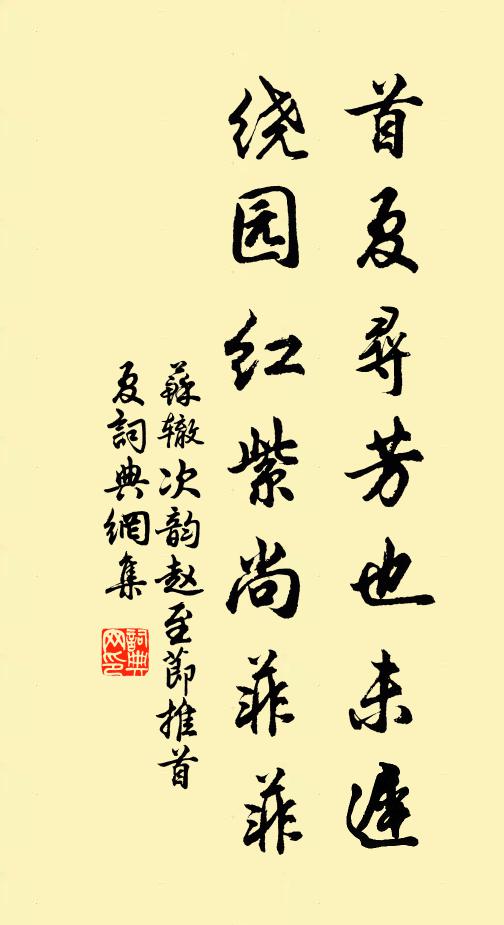 首夏尋芳也未遲
绕园红紫尚菲菲
蘇辙次韵赵至節推首
夏詞典網集
詞典网印